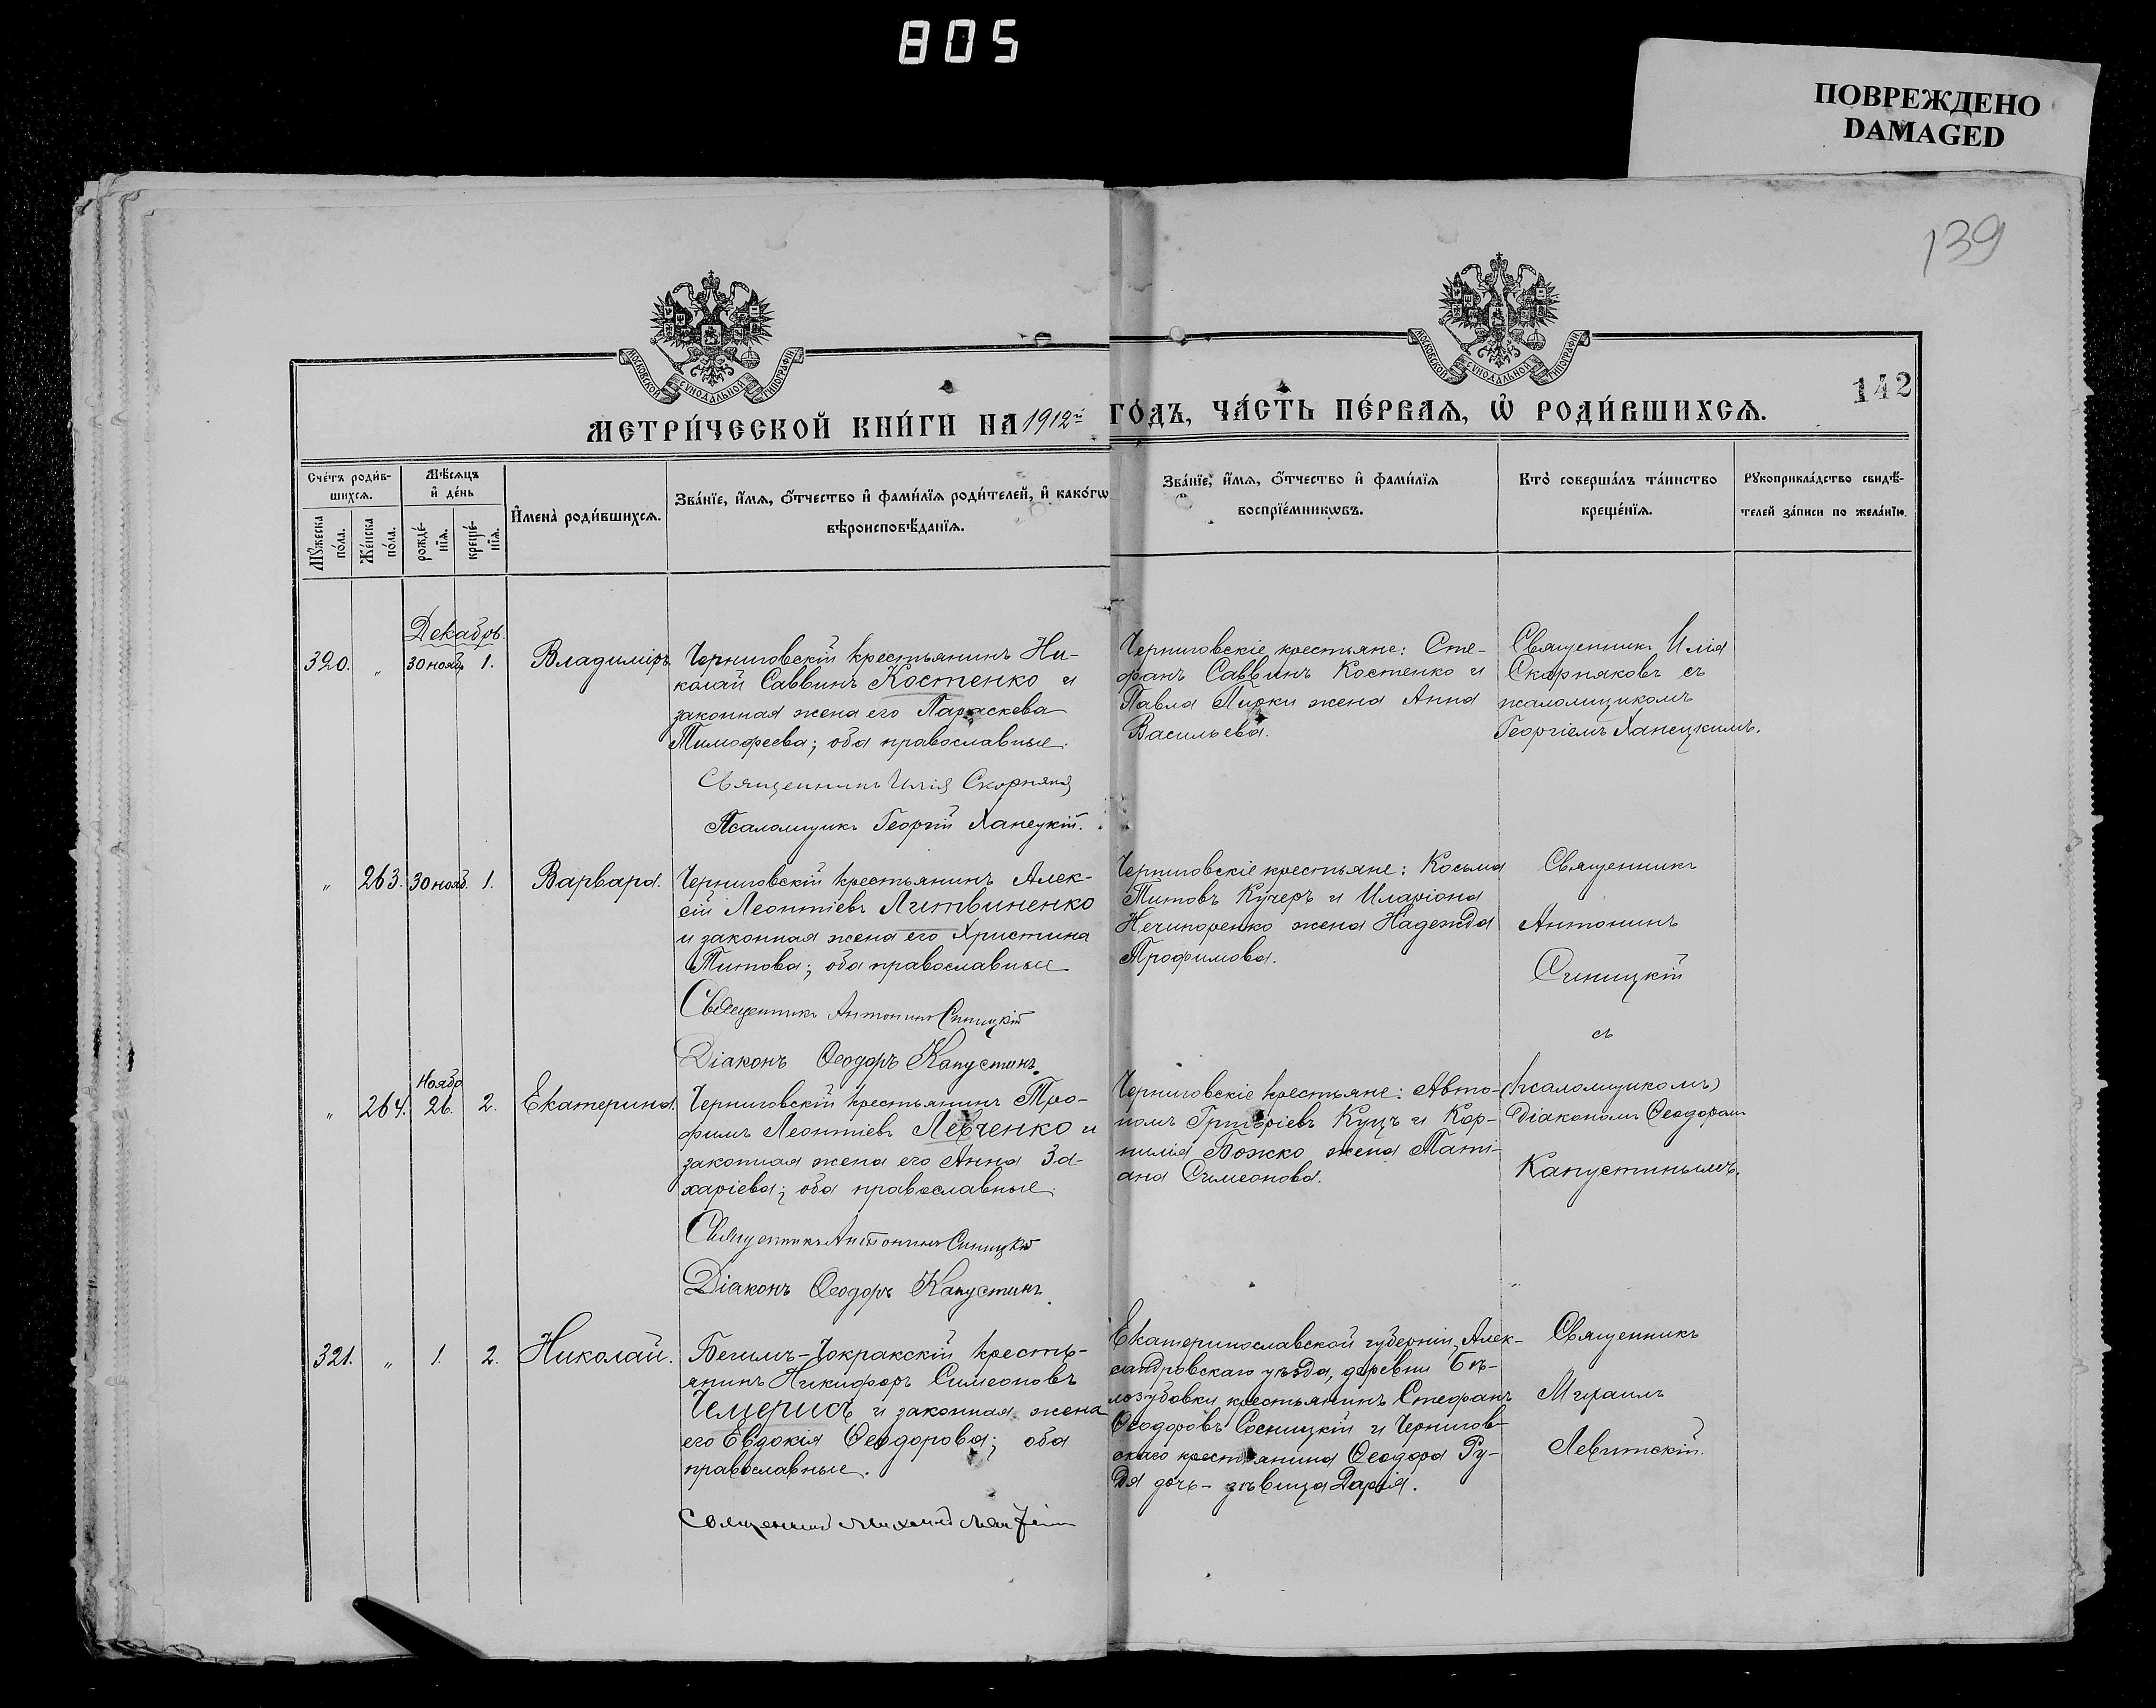 805
ПОВРЕЖДЕНО
DAMAGED
139
142
МОСКОВСКОЙ СѴНОДАЛЬНОЙ ТИПОГРАФІИ
МОСКОВСКОЙ СѴНОДАЛЬНОЙ ТИПОГРАФІИ
МЕТРИ́ЧЕСКОЙ КНИ́ГИ НА 1912й ГО́ДЪ, ЧА́СТЬ ПЕ́РВАЯ, Ѡ҆ РОДИ́ВШИХСЯ.
Сче́тъ роди́в-
шихся.
Мꙋ́жеска
по́ла.
Же́нска
по́ла.
Мѣ́сяцъ
и҆ де́нь
рожде́-
нїя.
креще́-
нїя.
И҆мена̀ роди́вшихся.
Зва́нїе, и҆́мя, ѻ҆́тчество и҆ фами́лїя роди́телей, и҆ како́гѡ
вѣроисповѣ́данїя.
Зва́нїе, и҆́мя, ѻ҆́тчество и҆ фами́лїя
воспрїе́мникѡвъ.
Кто̀ соверша́лъ та́инство
креще́нїя.
Рꙋкоприкла́дство свидѣ́-
телей за́писи по жела́нїю.
Декабрь.
320. „ 30 нояб. 1. Владиміръ
Черниговскій крестьянинъ Ни-
колай Саввинъ Костенко и
законная жена его Параскева
Тимофеева; оба православные.
Священникъ Илія Скорняков
Псаломщикъ Георгій Ханецкій.
Черниговскіе крестьяне: Сте-
фанъ Саввинъ Костенко и
Павла Пирки жена Анна
Васильева.
Священникъ Илія
Скорняковъ съ
псаломщикомъ
Георгіемъ Ханецкимъ.
„ 263. 30 нояб. 1. Варвара.
Черниговскій крестьянинъ Алек-
сій Леонтіевъ Литвиненко
и законная жена его Христина
Титова; оба православные
Священникъ Антонинъ Синицкій
Діаконъ Ѳеодоръ Капустинъ.
Черниговскіе крестьяне: Косьма
Титовъ Кучеръ и Иларіона
Нечипоренко жена Надежда
Трофимова.
Священникъ
Антонинъ
Синицкій
съ
(псаломщикомъ)
Діакономъ Ѳеодоромъ
Капустинымъ.
Нояб
„ 264. 26. 2. Екатерина.
Черниговскій крестьянинъ Тро-
фимъ Леонтіевъ Левченко и
законная жена его Анна За-
харіева; оба православные.
Священникъ Антонинъ Синицкій
Діаконъ Ѳеодоръ Капустинъ.
Черниговскіе крестьяне: Авто-
номъ Григоріевъ Куцъ и Кор-
нилія Божко жена Таті-
ана Симеонова.
321. „ 1. 2. Николай.
Бегимъ-Чокракскій кресть-
янинъ Никифоръ Симеоновъ
Чемерисъ и законная жена
его Евдокія Ѳеодорова; оба
православные.
Священник Михаил
Екатеринославской губерніи, Алек-
сандровскаго уѣзда, деревни Бѣ-
лозубовки крестьянинъ Стефанъ
Ѳеодоровъ Сосницкій и Чернигов-
скаго крестьянина Ѳеодора Ру-
дя дочь - дѣвица Дарія.
Священникъ
Михаилъ
Левитскій.